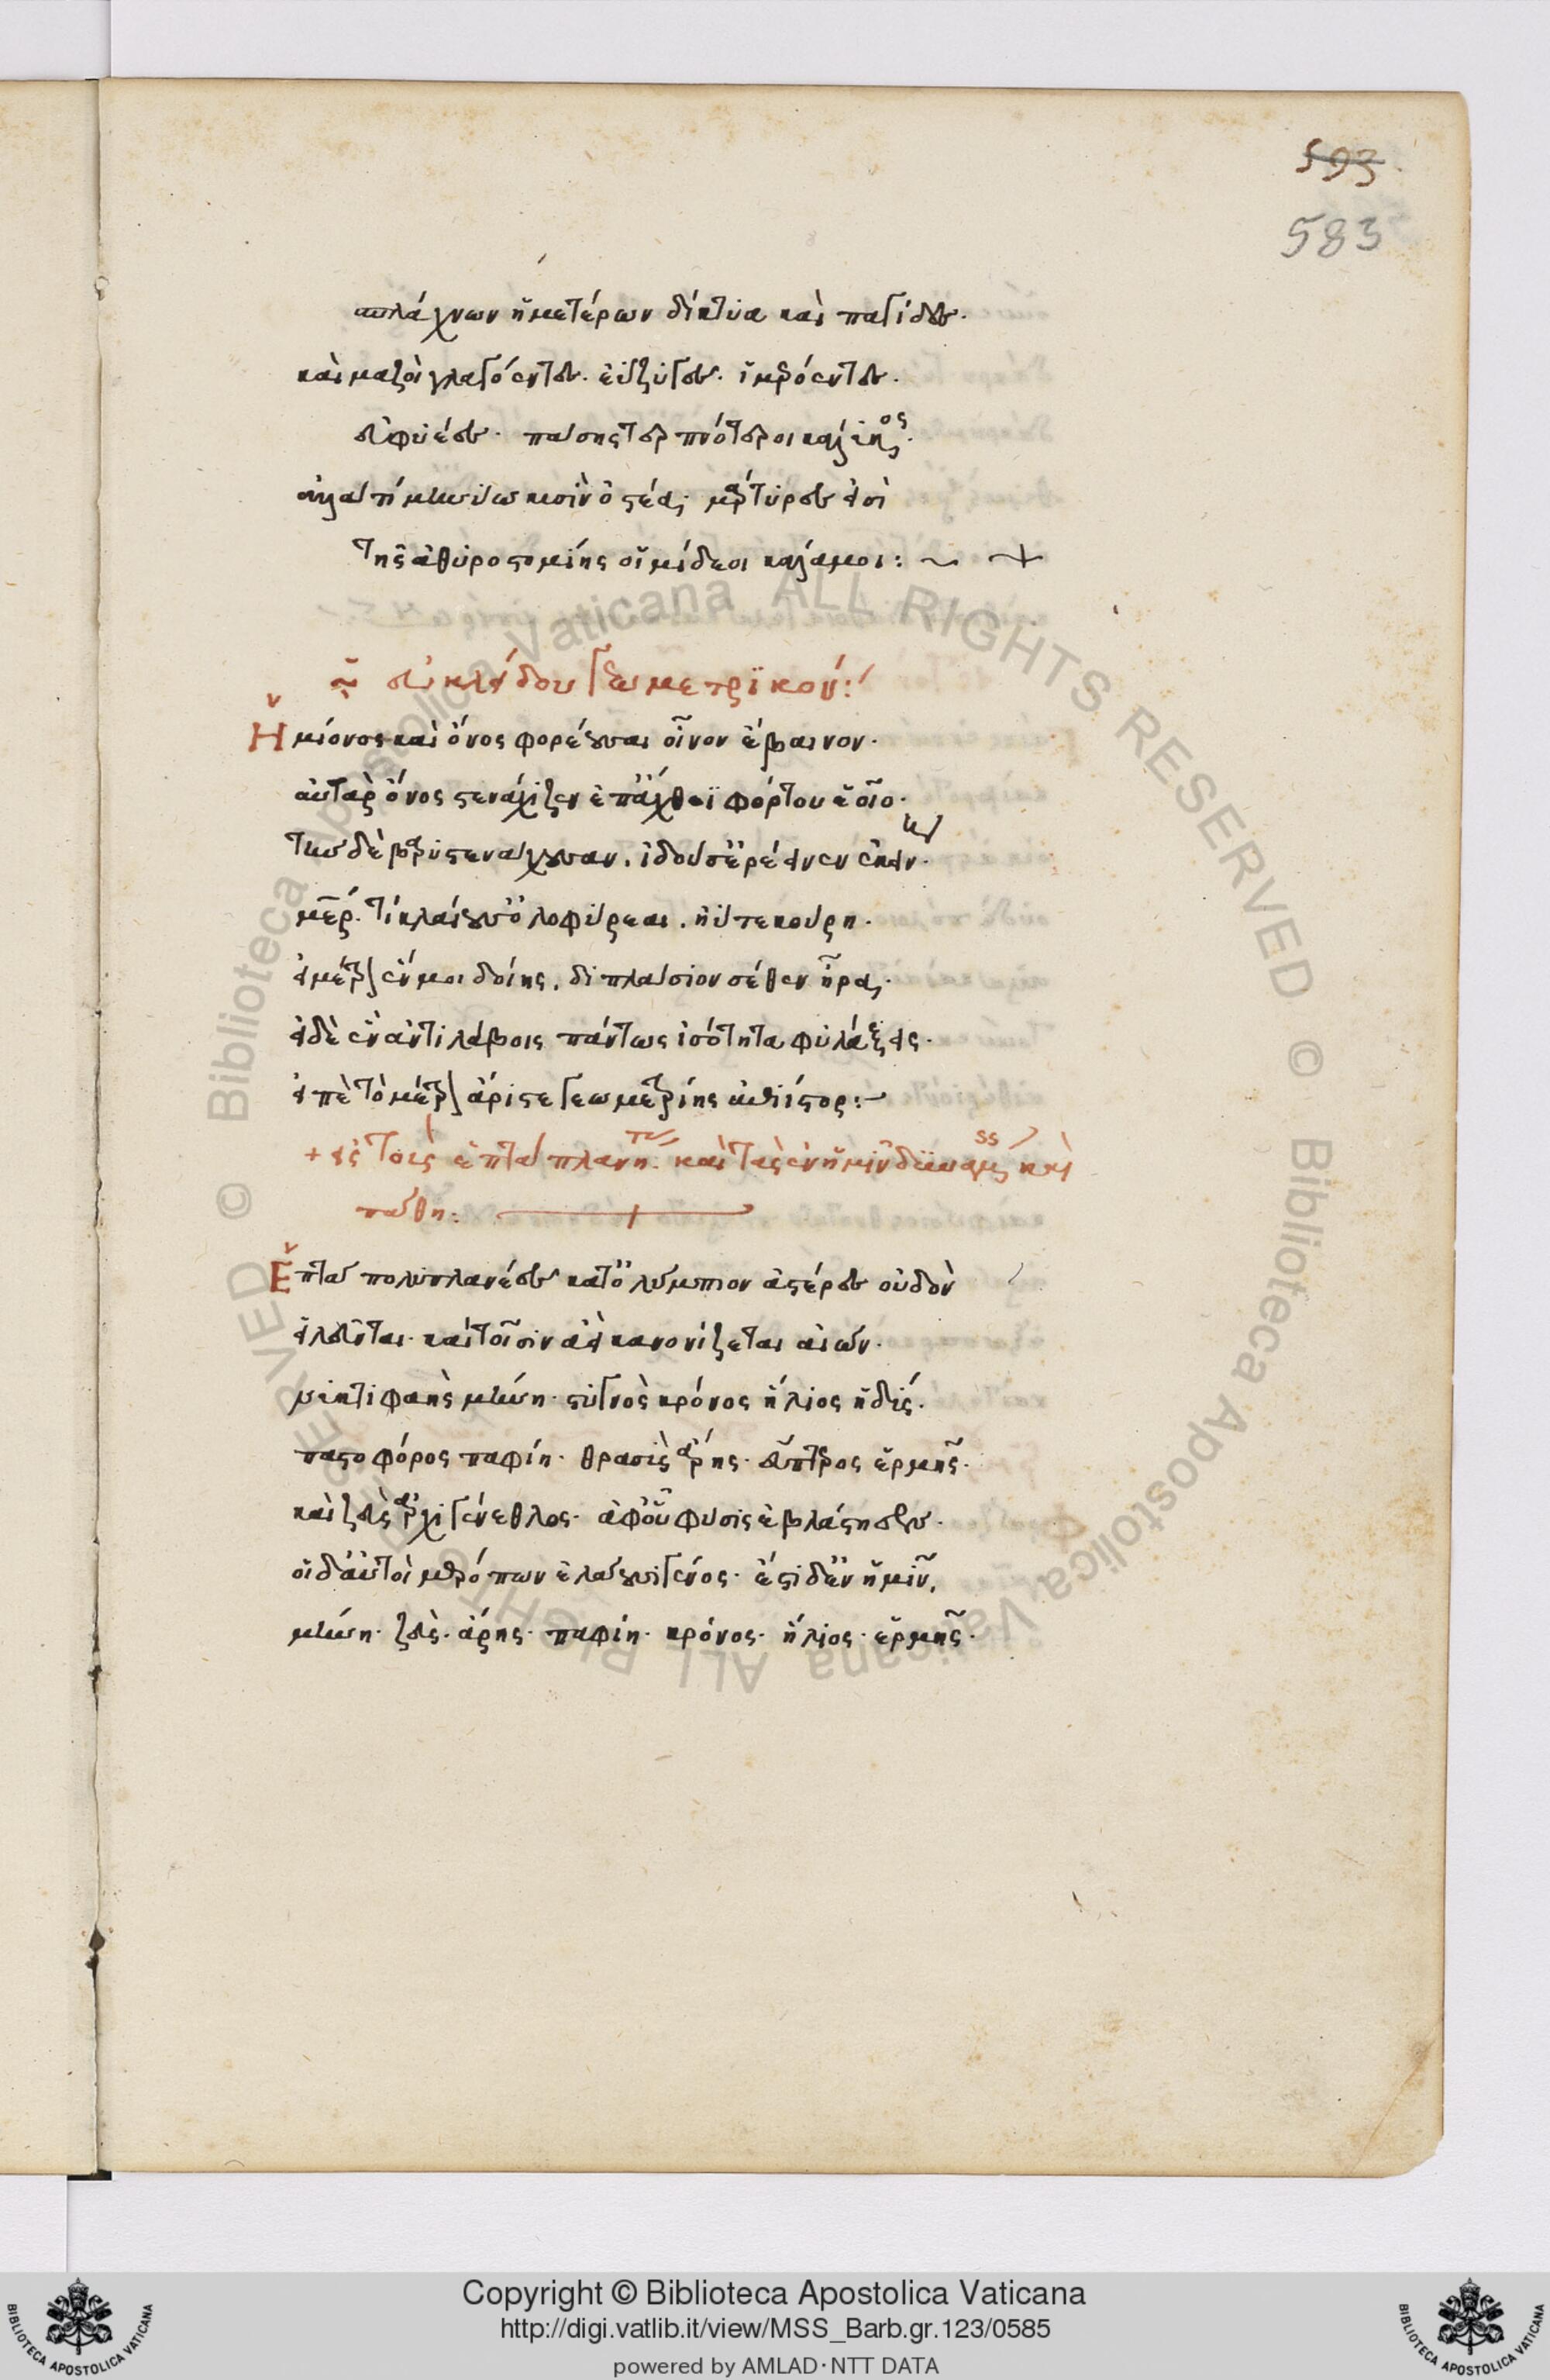 593
583
σπλάγχνων ἡμετέρων δίκτυα καὶ παγίδες.
καὶ μαζοὶ γλαγόεντες. ἐΰζυγες. ἱμερόεντες.
εὐφυέες. πάσης τερπνότεροι κάλυκος.
ἀλλὰ τί μηνύω κυσὶν ὀστέα; μάρτυρες εἰσὶ
τῆς ἀθυροστομίης οἱ μίδεοι κάλαμοι:
εὐκλείδου γεωμετρικόν:
Ἡμίονος καὶ ὄνος φορέουσαι οἶνον ἔβαινον.
αὐτὰρ ὄνος στενάχιζεν ἐπ' ἄχθεϊ φόρτου ἑοῖο.
τὴν δὲ βαρυστενάχουσαν, ἰδοῦσ' ἐρέεινεν ἐκείνη.
μῆτερ. τί κλαίουσ' ὀλοφύρεαι, ἠΰτε κούρη.
εἰ μέτρον ἕν μοι δοίης, διπλάσιον σέθεν ἦρα.
εἰ δὲ ἓν ἀντιλάβοις πάντως ἰσότητα φυλάξεις.
εἰπὲ τὸ μέτρον ἄριστε γεωμετρίης ἐπιίστορ:
+ εἰς τοὺς ἑπτὰ πλανήτας καὶ τὰς ἐν ἡμῖν δυνάμεις καὶ
πάθη:
Ἑπτὰ πολυπλανέες κατ' ὀλύμπιον ἀστέρες οὐδὸν
εἱλεῦνται. καὶ τοῖσιν ἀεὶ κανονίζεται αἰών.
νυκτιφανὴς μήνη. στυγνὸς κρόνος ἥλιος ἡδύς.
παστοφόρος παφίη. θρασὺς ἄρης. εὔπτερος ἑρμῆς.
καὶ ζεὺς ἀρχιγένεθλος. ἀφ' οὗ φύσις ἐβλάστησεν.
οἱ δ' αὐτοὶ μερόπων ἔλαχον γένος. ἔστι δ' ἐν ἡμῖν,
μήνη. ζεὺς. ἄρης. παφίη. κρόνος. ἥλιος. ἑρμῆς.
© Biblioteca Apostolica Vaticana ALL RIGHTS RESERVED © Biblioteca Apostolica Vaticana ALL RIGHTS RESERVED
Copyright © Biblioteca Apostolica Vaticana
http://digi.vatlib.it/view/MSS_Barb.gr.123/0585
powered by AMLAD·NTT DATA
BIBLIOTECA APOSTOLICA VATICANA
BIBLIOTECA APOSTOLICA VATICANA